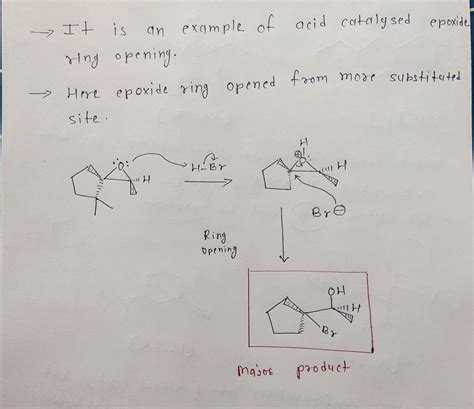 → It is an example of acid catalysed epoxide
ring opening.
→ Here epoxide ring opened from more substituted
site.
H
:O: H H-Br ⊕O: H
Br⊖
Ring
opening
OH
H
Br
Major product